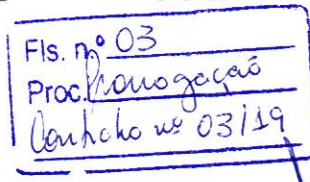 Fls. nº 03
Proc. Prorrogação
Contrato nº 03/19